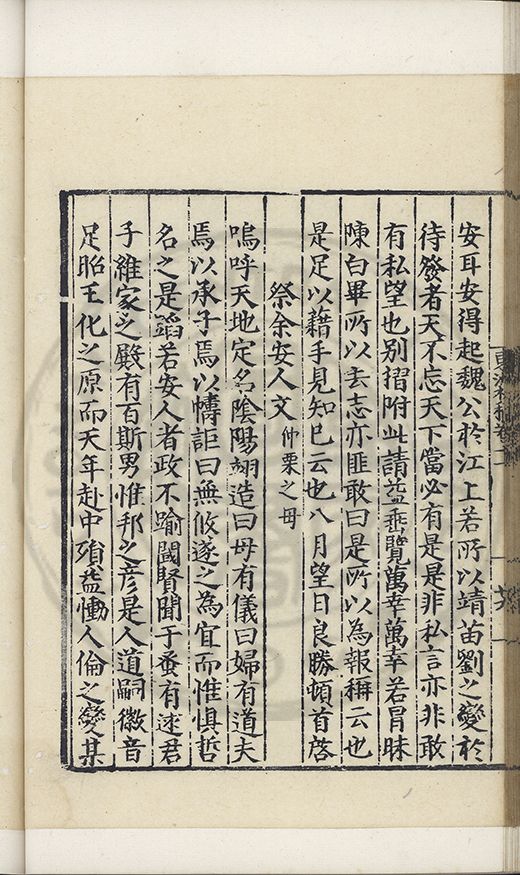 安耳安得起魏公於江上若所以靖苗劉之變於
待發者天不忘天下當必有是是非私言亦非敢
有私望也別摺附此請益垂覽萬幸萬幸若冐昧
陳白畢所以去志亦匪敢曰是所以為報稱云也
是足以藉手見知巳云也八月望日良勝頓首啓
祭余安人文 仲栗之母
嗚呼天地定名隂陽翊造曰母有儀曰婦有道夫
焉以承子焉以幬詎曰無攸遂之為宜而惟惧哲
名之是蹈若安人者政不踰閫賢聞于蚤有逑君
子維家之殿有百斯男惟邦之彦是人道嗣徽音
足昭王化之原而天年赴中殞益慟人倫之變某